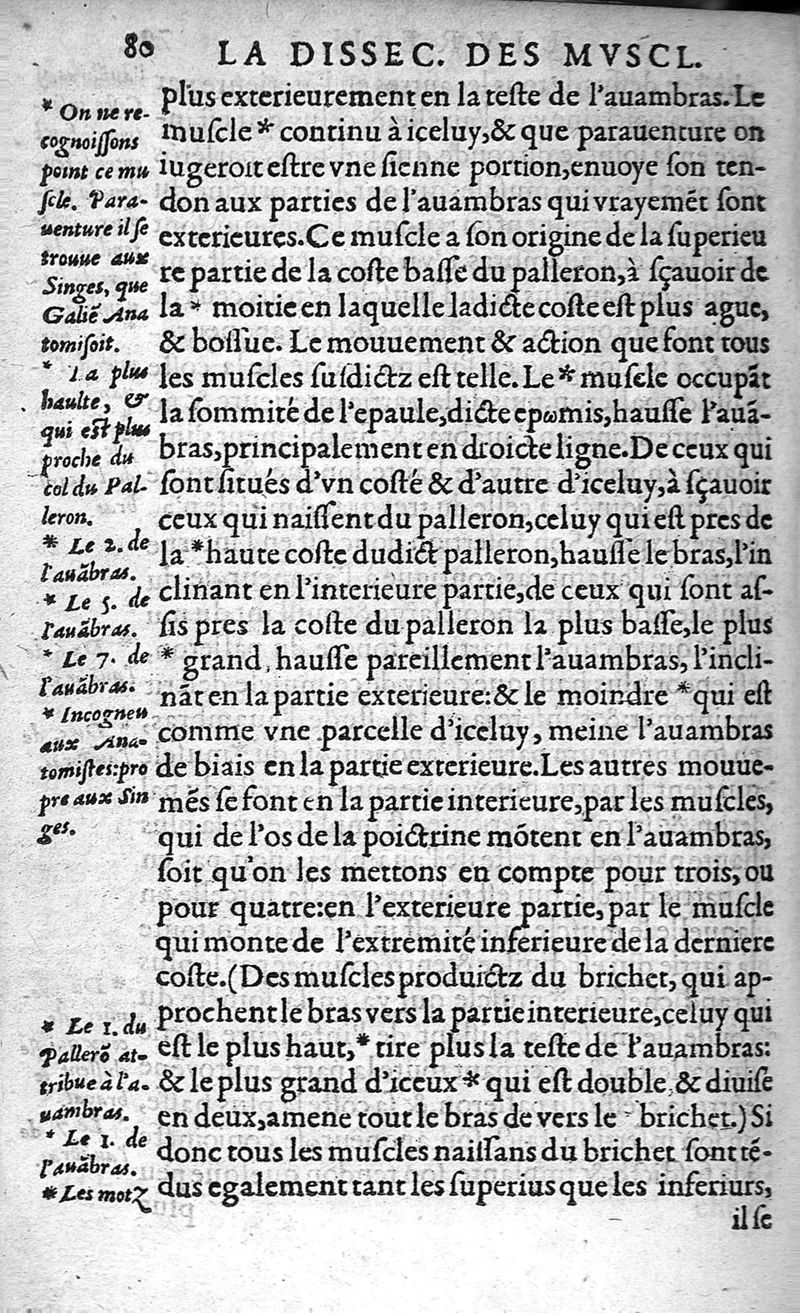 80 LA DISSEC. DES MVSCL.
plus exterieurement en la teſte de l'auambras. Le
muſcle * continu à iceluy, & que parauenture on
iugeroit eſtre vne ſienne portion, enuoye ſon ten-
don aux parties de l'auambras qui vrayemēt ſont
exterieures. Ce muſcle a ſon origine de la ſuperieu
re partie de la coſte baſſe du palleron, à ſçauoir de
la * moitie en laquelle ladicte coſte eſt plus ague,
& boſſue. Le mouuement & action que font tous
les muſcles ſuſdictz eſt telle. Le * muſcle occupāt
la ſommité de l'epaule, dicte epωmis, hauſſe l'auā-
bras, principalement en droicte ligne. De ceux qui
ſont ſitués d'vn coſté & d'autre d'iceluy, à ſçauoir
ceux qui naiſſent du palleron, celuy qui eſt pres de
la * haute coſte dudict palleron, hauſſe le bras, l'in
clinant en l'interieure partie, de ceux qui ſont aſ-
ſis pres la coſte du palleron la plus baſſe, le plus
* grand, hauſſe pareillement l'auambras, l'incli-
nāt en la partie exterieure: & le moindre * qui eſt
comme vne parcelle d'iceluy, meine l'auambras
de biais en la partie exterieure. Les autres mouue-
mēs ſe font en la partie interieure, par les muſcles,
qui de l'os de la poictrine mōtent en l'auambras,
ſoit qu'on les mettons en compte pour trois, ou
pour quatre: en l'exterieure partie, par le muſcle
qui monte de l'extremité inferieure de la derniere
coſte. (Des muſcles produictz du brichet, qui ap-
prochent le bras vers la partie interieure, celuy qui
eſt le plus haut, * tire plus la teſte de l'auambras:
& le plus grand d'iceux * qui eſt double & diuiſe
en deux, amene tout le bras de vers le brichet.) Si
donc tous les muſcles naiſſans du brichet ſont tē-
dus egalement tant les ſuperius que les inferiurs,
il ſe
* On ne re-
cognoiſſons
point ce mu
ſcle. Para-
uenture il ſe
trouue aux
Singes, que
Galiē Ana
tomiſoit.
* La plus
haulte, &
qui eſt plus
proche du
col du Pal-
leron.
* Le 2. de
l'auābras.
* Le 5. de
l'auābras.
* Le 7. de
l'auābras.
* Incogneu
aux Ana-
tomiſtes: pro
pre aux Sin
ges.
* Le 1. du
Pallerō at-
tribue à l'a-
uambras.
* Le 1. de
l'auābras.
* Les motz